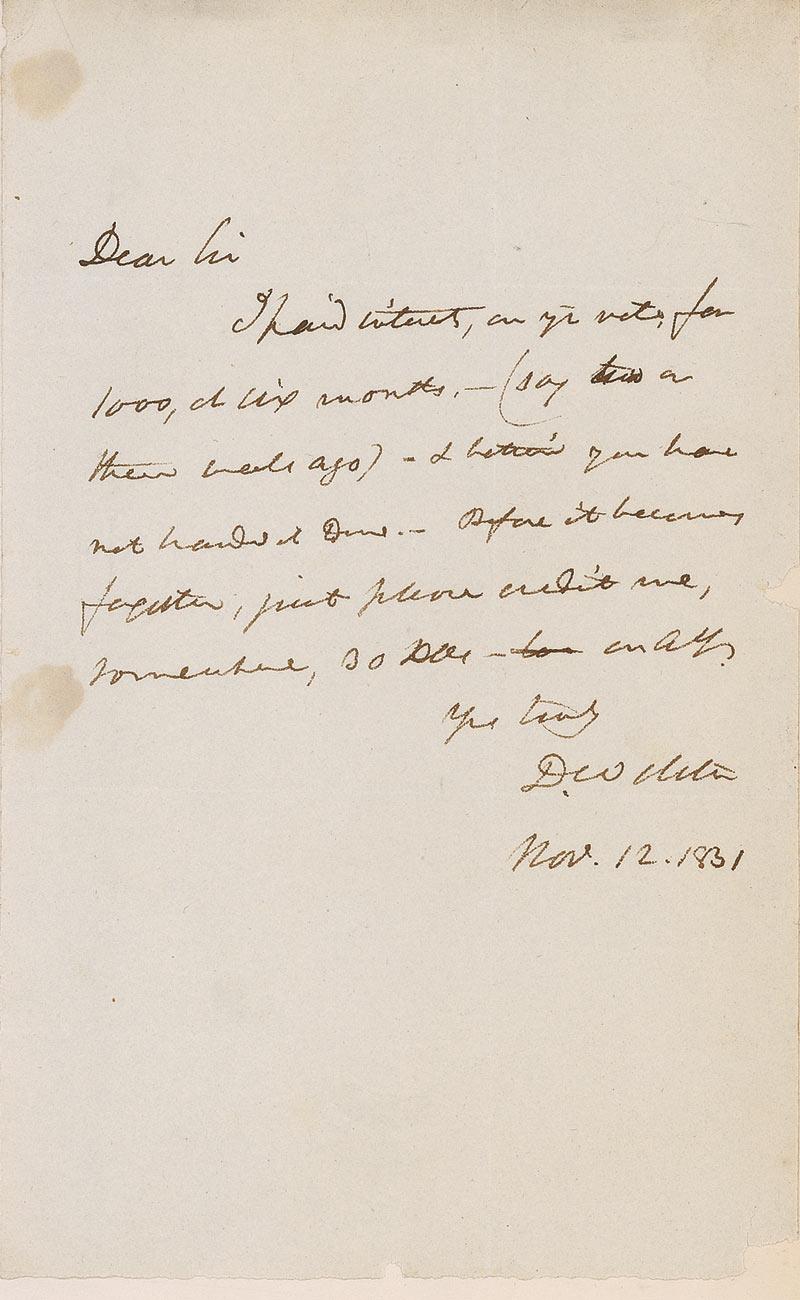 Dear Sir
I paid interest, on yr note, for
1000, at six months, — (say two or
three weeks ago) - I believe you have
not handed it Down. — Before it becomes
forgotten, just please credit me,
somewhere, 30 Dlls — on a/c
Yrs truly
D. Webster
Nov. 12. 1831